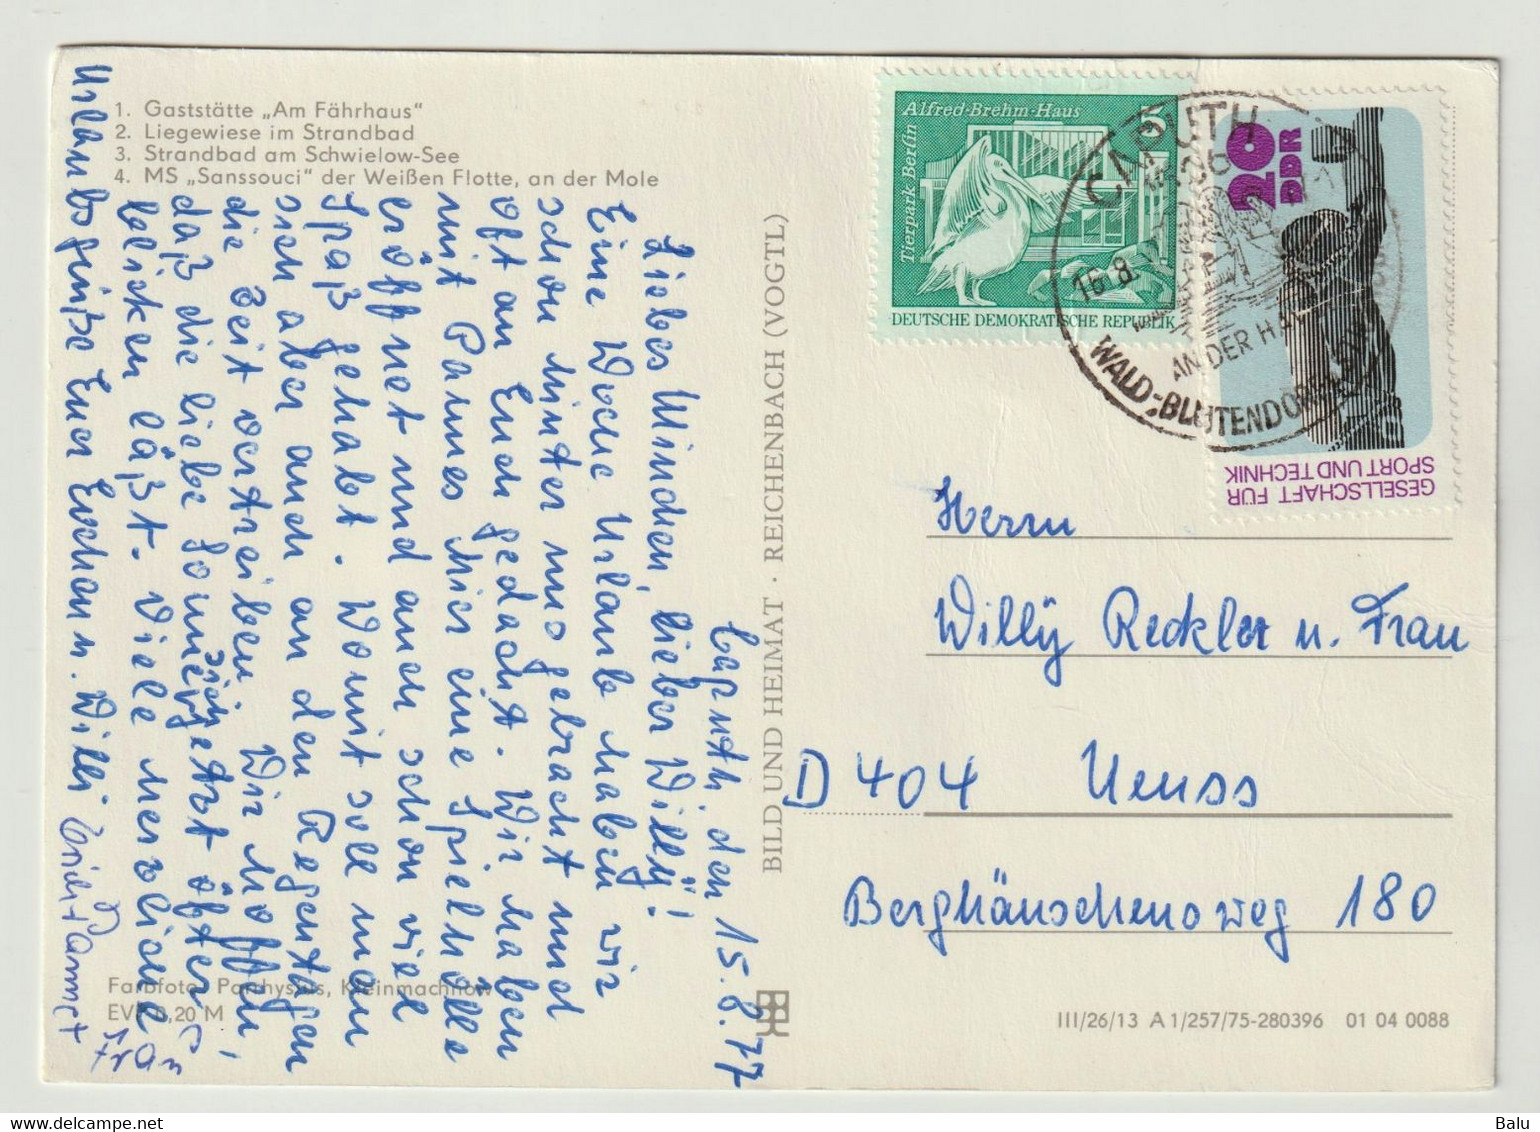 1. Gaststätte „Am Fährhaus“
2. Liegewiese im Strandbad
3. Strandbad am Schwielow-See
4. MS „Sanssouci“ der Weißen Flotte, an der Mole
Caputh, den 15.8.77
Liebes Minchen, lieber Willy!
Eine Woche Urlaub haben wir
schon hinter uns gebracht und
oft an Euch gedacht. Wir haben
mit Pannes hier eine Spielhölle
eröffnet und auch schon viel
Spaß gehabt. Womit soll man
sich aber auch an den Regentagen
die Zeit vertreiben. Wir hoffen,
daß die liebe Sonne jetzt öfters
sich
blicken läßt. Viele herzliche
Urlaubsgrüße Euer u. Willi
Erich + Frau
BILD UND HEIMAT · REICHENBACH (VOGTL)
Farbfotos: Parchysus, Kleinmachnow
EVP 0,20 M
Alfred-Brehm-Haus
5
Tierpark Berlin
DEUTSCHE DEMOKRATISCHE REPUBLIK
20
DDR
GESELLSCHAFT FÜR
SPORT UND TECHNIK
CAPUTH
16.8.
AN DER HAVEL
WALD-BLÜTENDORF
Herrn
Willy Reckler u. Frau
D 404 Neuss
Berghäuschensweg 180
III/26/13 A 1/257/75-280396 01 04 0088
Balu